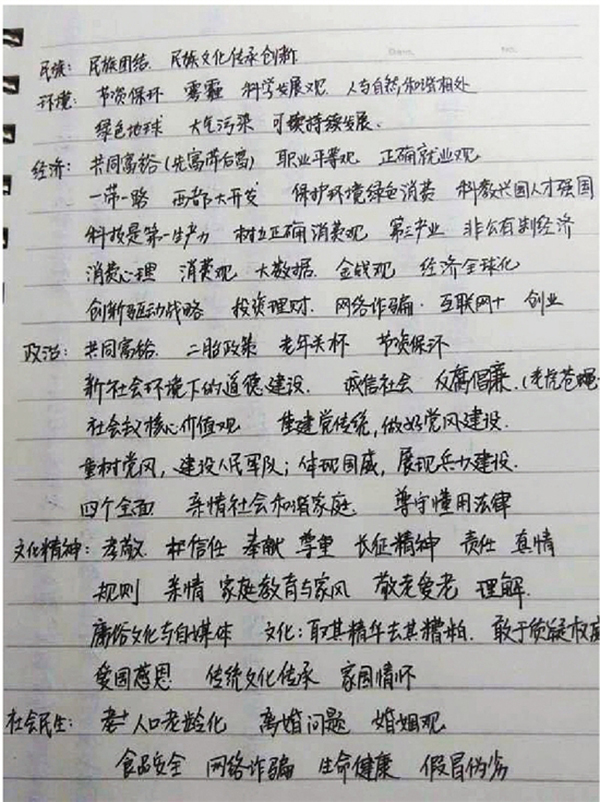 民族：民族团结 民族文化传承创新
环境：节资保环 雾霾 科学发展观 人与自然和谐相处
绿色地球 大气污染 可续持续发展.
经济：共同富裕(先富带后富) 职业平等观 正确就业观
一带一路 西部大开发 保护环境绿色消费 科教兴国人才强国
科技是第一生产力 树立正确消费观 第三产业 非公有制经济
消费心理 消费观 大数据 金钱观 经济全球化
创新驱动战略 投资理财. 网络诈骗. 互联网+ 创业
政治：共同富裕. 二胎政策 老年关怀 节资保环
新社会环境下的道德建设. 诚信社会 反腐倡廉.(老虎苍蝇
社会主义核心价值观 重建党传统,做好党风建设.
重树党风，建设人民军队；体现国威，展现兵力建设.
四个全面 亲情社会和谐家庭 尊守懂用法律
文化精神：孝敬. 相信任 奉献 尊重 长征精神 责任 真情
规则 亲情 家庭教育与家风 敬老爱老 理解.
庸俗文化与自媒体 文化：取其精华去其糟粕. 敢于质疑权威
爱国感恩 传统文化传承 家国情怀
社会民生： 人口老龄化 离婚问题 婚姻观
食品安全 网络诈骗 生命健康 假冒伪劣